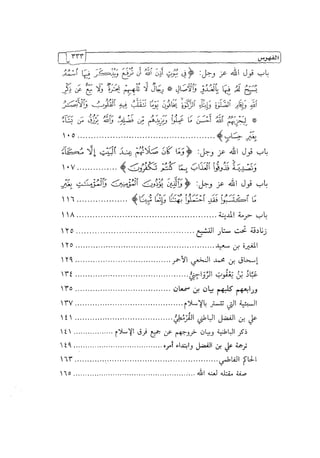 الفهرس ٣٣٣
باب قول الله عز وجل: ﴿فِي بُيُوتٍ أَذِنَ اللَّهُ أَن تُرْفَعَ وَيُذْكَرَ فِيهَا اسْمُهُ
يُسَبِّحُ لَهُ فِيهَا بِالْغُدُوِّ وَالْآصَالِ * رِجَالٌ لَّا تُلْهِيهِمْ تِجَارَةٌ وَلَا بَيْعٌ عَن ذِكْرِ
اللَّهِ وَإِقَامِ الصَّلَاةِ وَإِيتَاءِ الزَّكَاةِ يَخَافُونَ يَوْمًا تَتَقَلَّبُ فِيهِ الْقُلُوبُ وَالْأَبْصَارُ
* لِيَجْزِيَهُمُ اللَّهُ أَحْسَنَ مَا عَمِلُوا وَيَزِيدَهُم مِّن فَضْلِهِ وَاللَّهُ يَرْزُقُ مَن يَشَاءُ
بِغَيْرِ حِسَابٍ﴾ ........ ١٠٥
باب قول الله عز وجل: ﴿وَمَا كَانَ صَلَاتُهُمْ عِندَ الْبَيْتِ إِلَّا مُكَاءً
وَتَصْدِيَةً فَذُوقُوا الْعَذَابَ بِمَا كُنتُمْ تَكْفُرُونَ﴾ ........ ١٠٧
باب قول الله عز وجل: ﴿وَالَّذِينَ يُؤْذُونَ الْمُؤْمِنِينَ وَالْمُؤْمِنَاتِ بِغَيْرِ
مَا اكْتَسَبُوا فَقَدِ احْتَمَلُوا بُهْتَانًا وَإِثْمًا مُّبِينًا﴾ ........ ١١٦
باب حرمة المدينة ........ ١١٨
زنادقة تحت ستار التشيع ........ ١٢٥
المغيرة بن سعيد ........ ١٢٥
إسحاق بن محمد النخعي الأحمر ........ ١٢٩
عَبَّادُ بْنُ يَعْقُوبَ الرَّوَاجِنِيُّ ........ ١٣٤
ورابعهم كلبهم بيان بن سمعان ........ ١٣٥
السبئية التي تتستر بالإسلام ........ ١٣٧
علي بن الفضل الباطني القَرْمَطِيُّ ........ ١٤١
ذكر الباطنية وبيان خروجهم عن جميع فرق الإسلام ........ ١٤١
ترجمة علي بن الفضل وابتداء أمره ........ ١٤٩
الحاكم الفاطمي ........ ١٦٣
صفة مقتله لعنه الله ........ ١٦٥